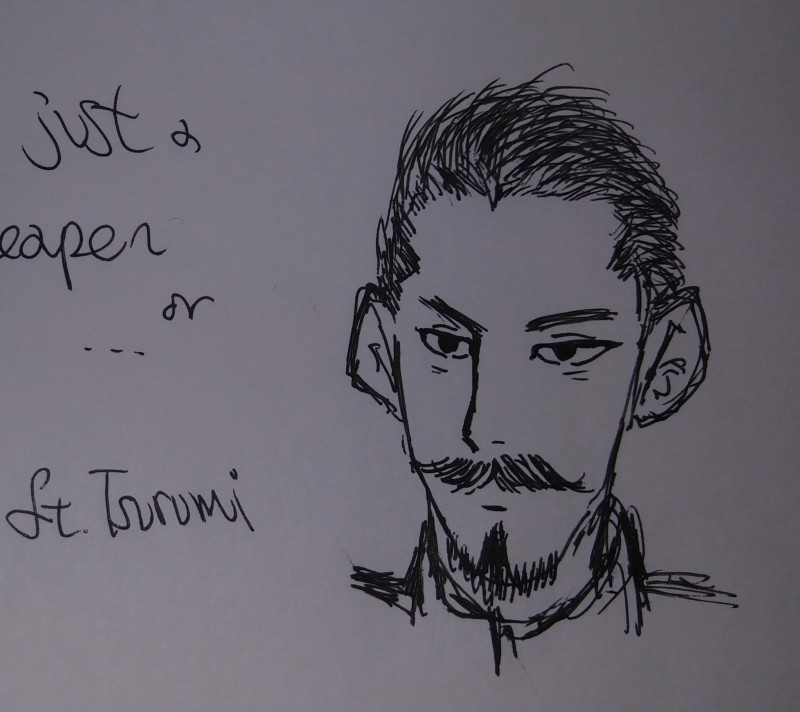 just a
eaper
or
...
ft. Tsurumi